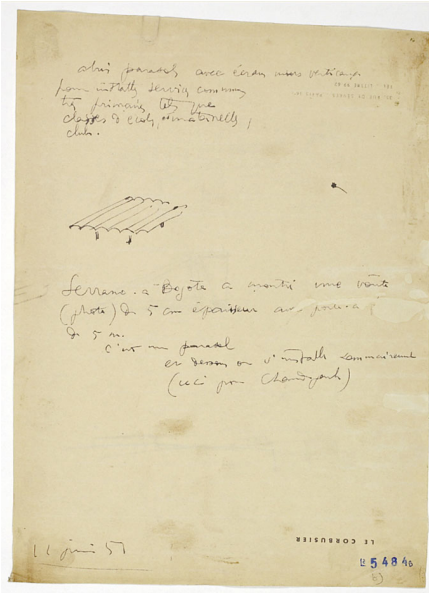 abris parasol avec écran murs verticaux
pour installer services communs
très primaires, tels que
classes d'école, maternelles,
clubs.
Serrano à Bogota a montré une voûte
(photo) de 5 cm épaisseur avec portée
de 5 m.
c'est un parasol
en dessous on s'installe sommairement
(ceci pour Chandigarh)
LE CORBUSIER
11 juin 51
5484